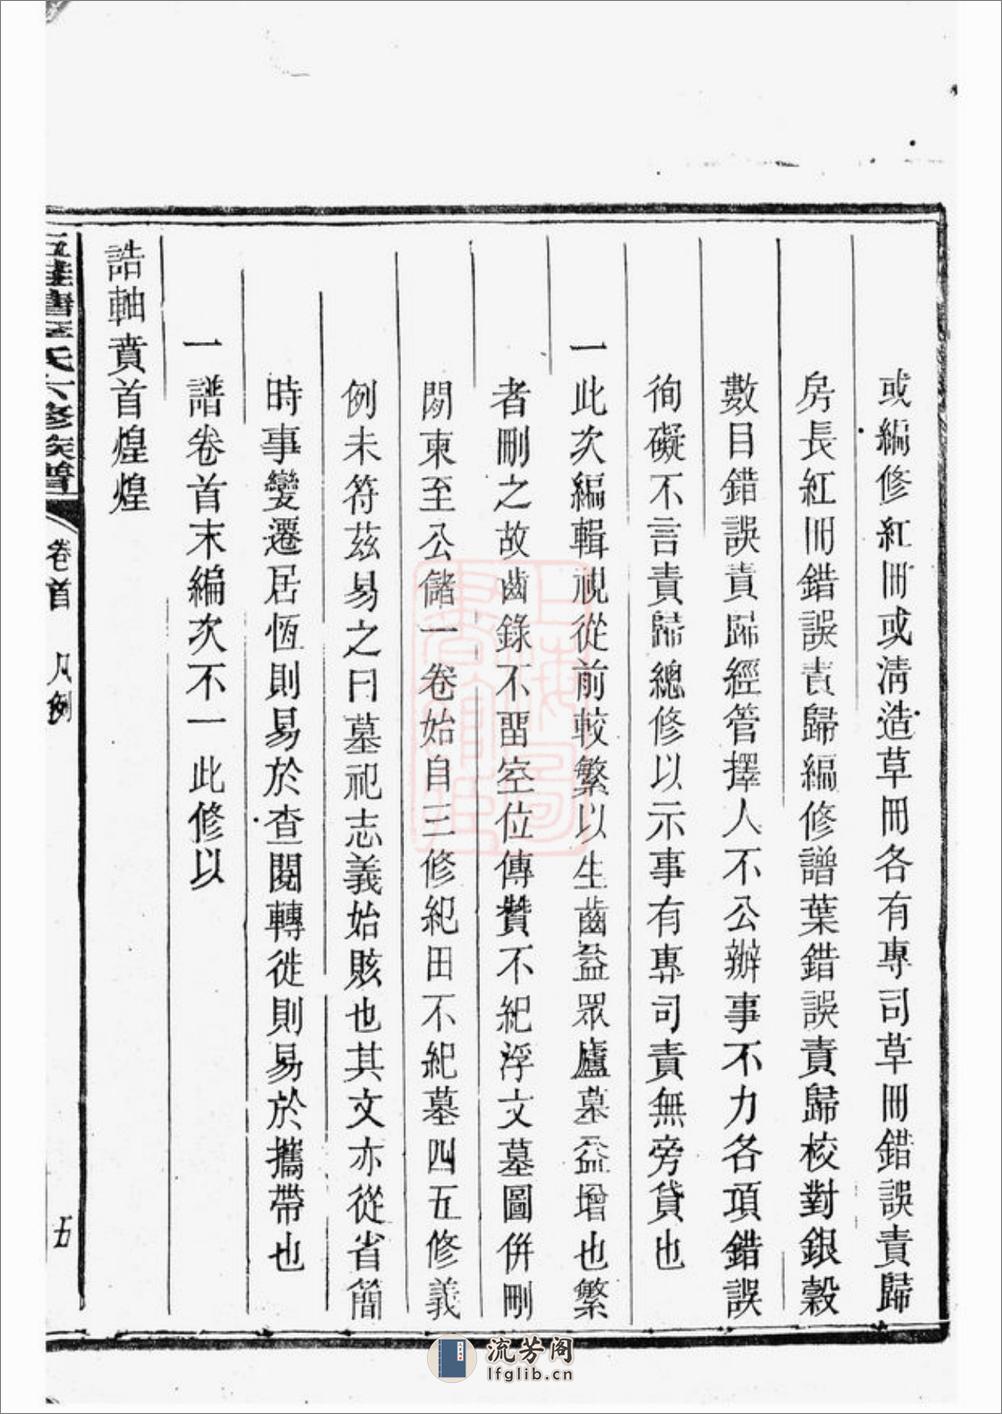 或編修紅冊或淸造草冊各有專司草冊錯誤責歸
房長紅冊錯誤責歸編修譜葉錯誤責歸校對銀穀
數目錯誤責歸經管擇人不公辦事不力各項錯誤
徇礙不言責歸總修以示事有專司責無旁貸也
一此次編輯視從前較繁以生齒益眾廬墓益增也繁
者刪之故齒錄不畱空位傳贊不紀浮文墓圖併刪
閱東至公儲一卷始自三修紀田不紀墓四五修義
例未符茲易之曰墓祀志義始賅也其文亦從省簡
時事變遷居恆則易於查閱轉徙則易於攜帶也
一譜卷首末編次不一此修以
誥軸賁首煌煌
氏六修族譜
卷首
凡例
五
流芳阁
lfglib.cn